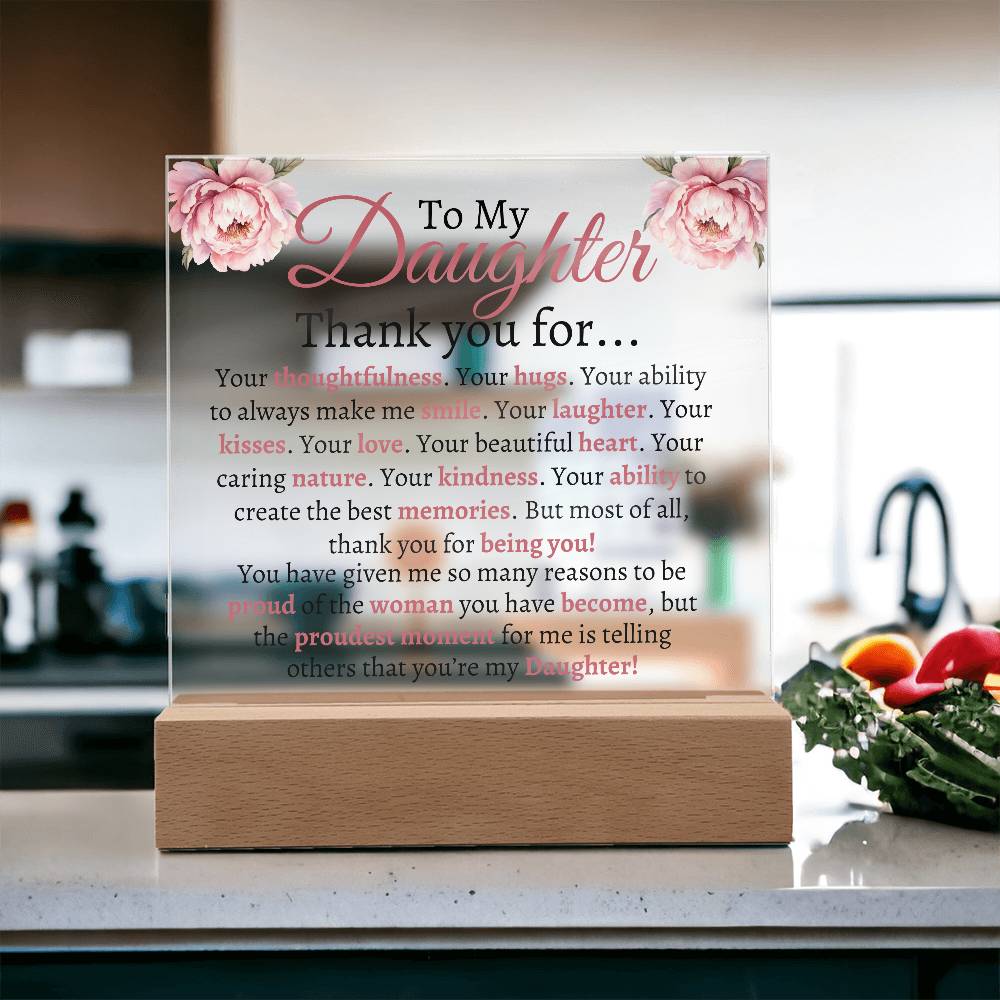 To My
Daughter
Thank you for...
Your thoughtfulness. Your hugs. Your ability
to always make me smile. Your laughter. Your
kisses. Your love. Your beautiful heart. Your
caring nature. Your kindness. Your ability to
create the best memories. But most of all,
thank you for being you!
You have given me so many reasons to be
proud of the woman you have become, but
the proudest moment for me is telling
others that you’re my Daughter!